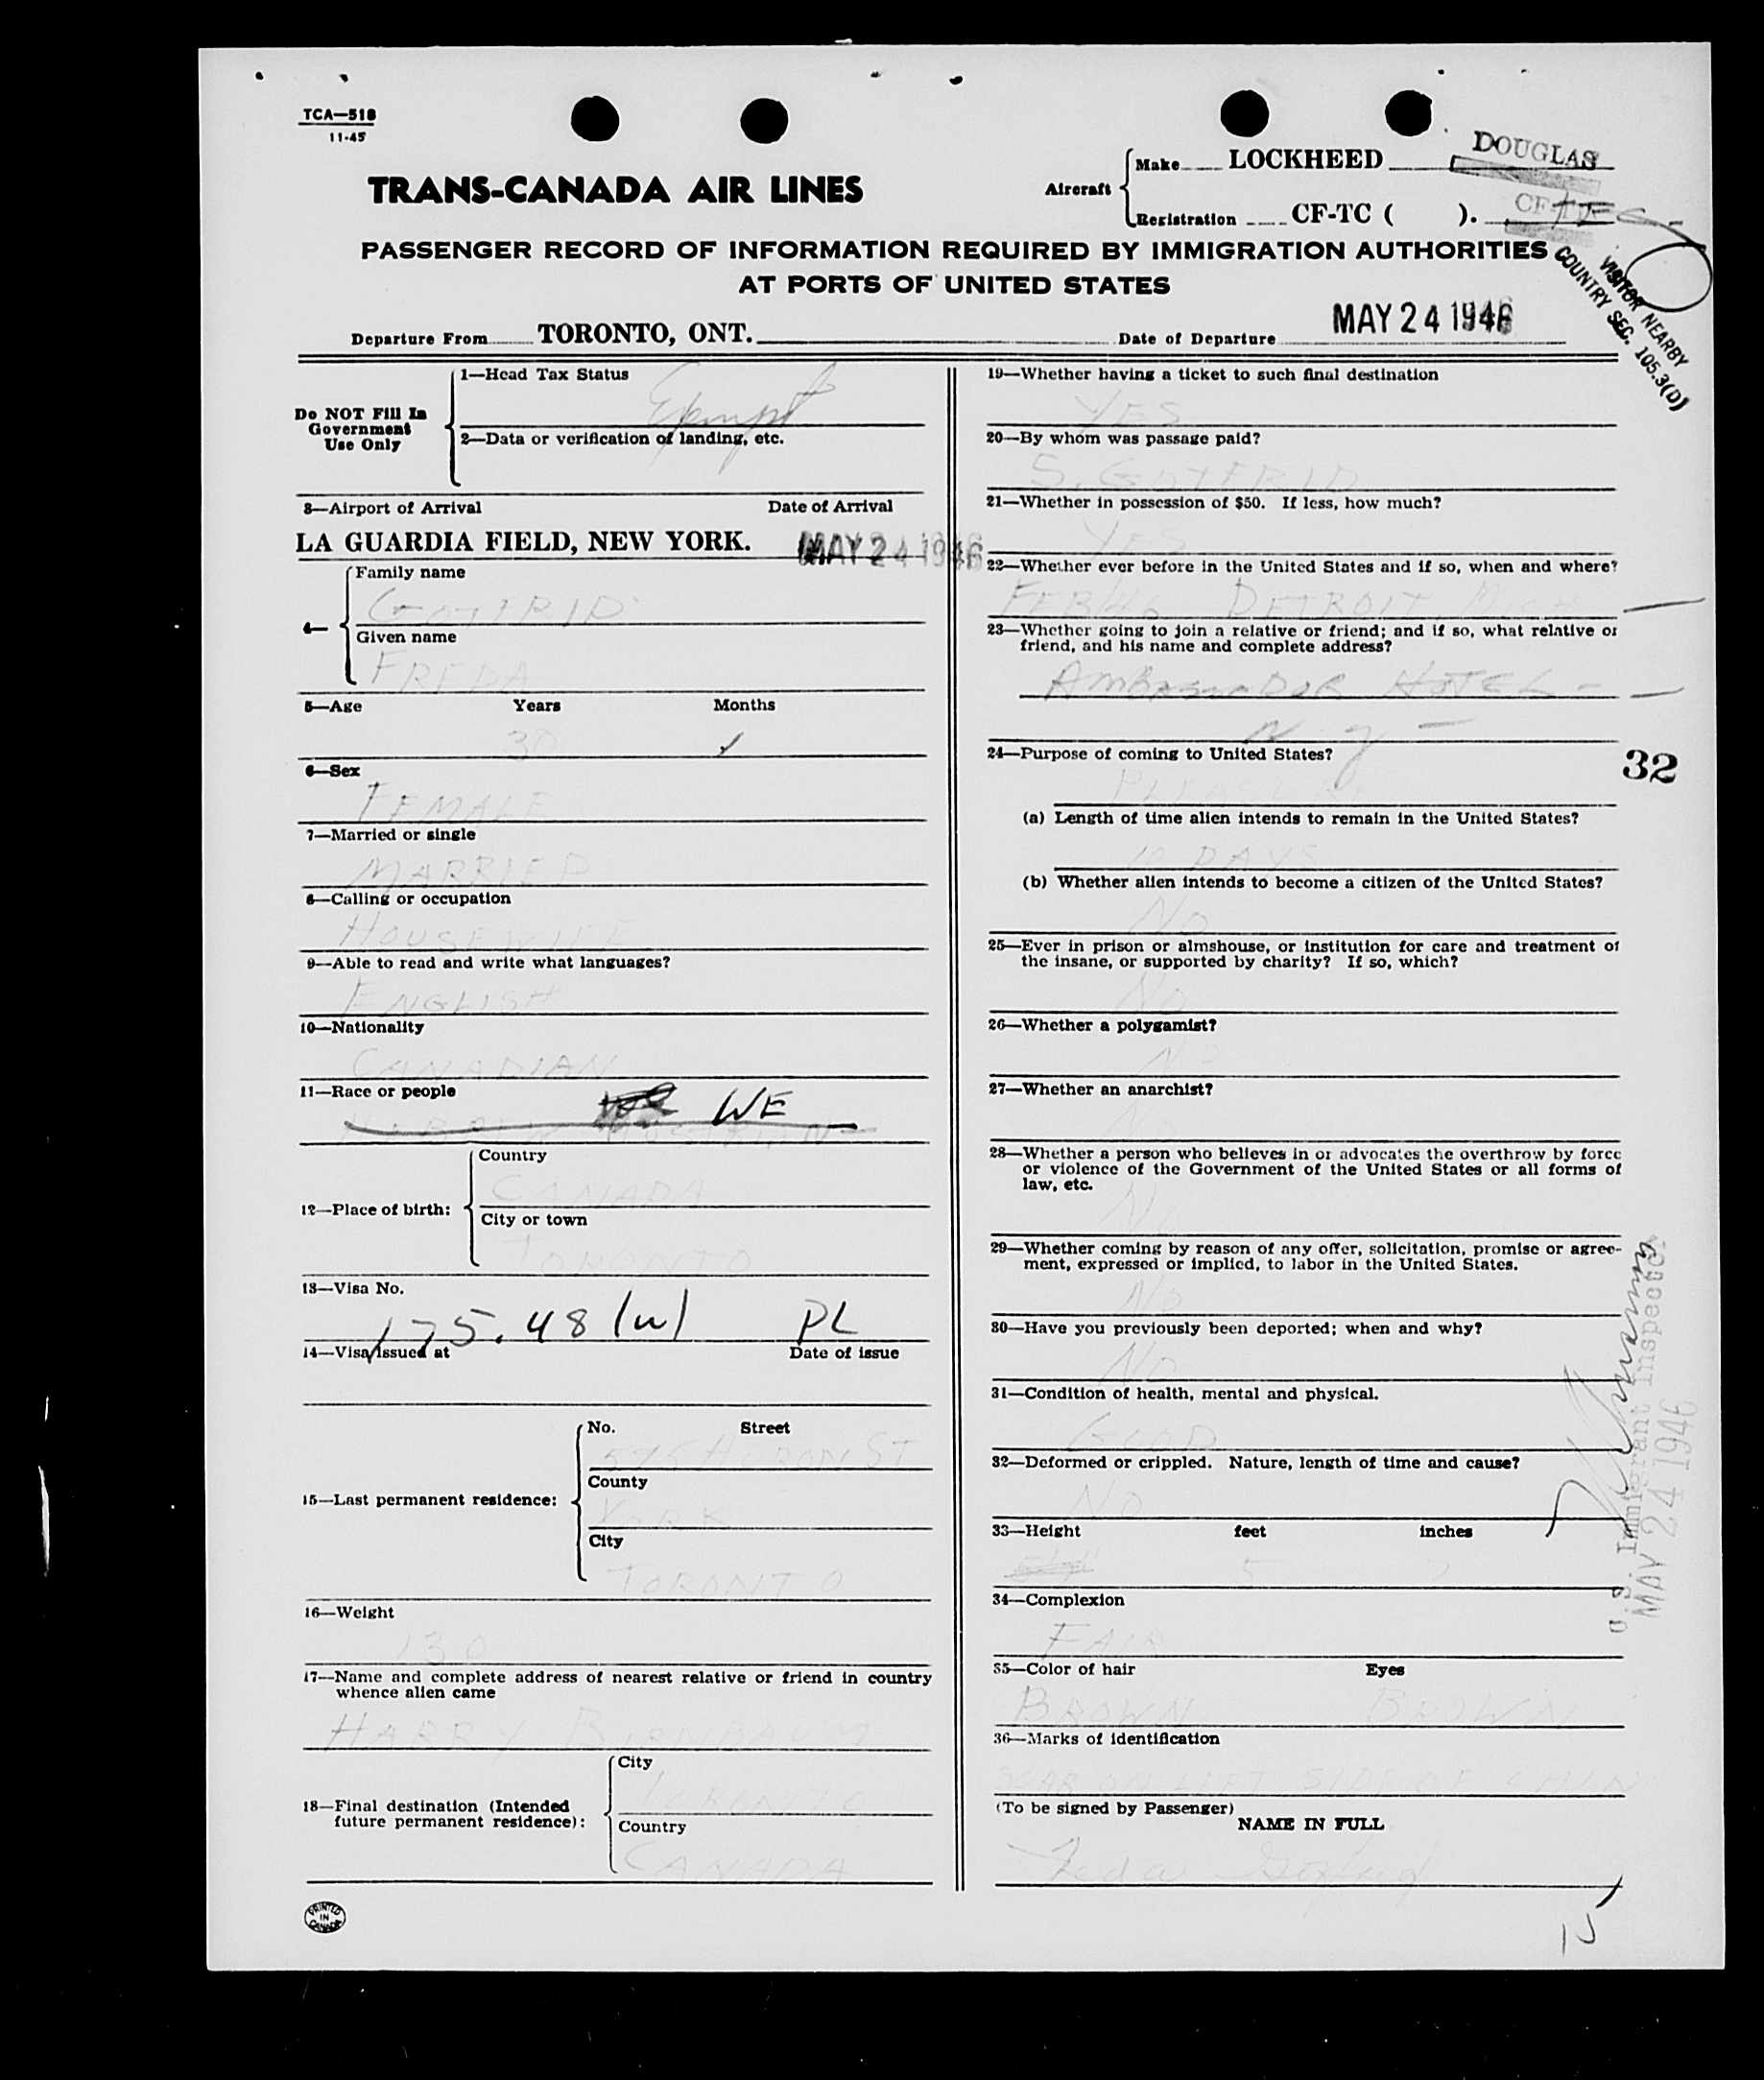 TCA—518
11-45
TRANS-CANADA AIR LINES
Aircraft
Make LOCKHEED DOUGLAS
Registration CF-TC ( ).
PASSENGER RECORD OF INFORMATION REQUIRED BY IMMIGRATION AUTHORITIES
AT PORTS OF UNITED STATES
VISITOR NEARBY
COUNTRY SEC. 105.3(D)
Departure From TORONTO, ONT. Date of Departure MAY 24 1946
Do NOT Fill In
Government
Use Only
1—Head Tax Status
Exempt
2—Data or verification of landing, etc.
3—Airport of Arrival Date of Arrival
LA GUARDIA FIELD, NEW YORK. MAY 24 1946
4—
Family name
GOTFRID
Given name
FREDA
5—Age Years Months
30
6—Sex
FEMALE
7—Married or single
MARRIED
8—Calling or occupation
HOUSEWIFE
9—Able to read and write what languages?
ENGLISH
10—Nationality
CANADIAN
11—Race or people
WE
12—Place of birth:
Country
CANADA
City or town
TORONTO
13—Visa No.
175.48 (w) PL
14—Visa issued at Date of issue
15—Last permanent residence:
No. Street
575 HURON ST
County
YORK
City
TORONTO
16—Weight
130
17—Name and complete address of nearest relative or friend in country
whence alien came
HARRY BIRNBAUM
18—Final destination (Intended
future permanent residence):
City
TORONTO
Country
CANADA
PRINTED
IN
CANADA
19—Whether having a ticket to such final destination
YES
20—By whom was passage paid?
S. GOTFRID
21—Whether in possession of $50. If less, how much?
YES
22—Whether ever before in the United States and if so, when and where?
FEB/46 DETROIT, MICH
23—Whether going to join a relative or friend; and if so, what relative or
friend, and his name and complete address?
AMBASSADOR HOTEL -
N Y -
24—Purpose of coming to United States?
PLEASURE
32
(a) Length of time alien intends to remain in the United States?
10 DAYS
(b) Whether alien intends to become a citizen of the United States?
NO
25—Ever in prison or almshouse, or institution for care and treatment of
the insane, or supported by charity? If so, which?
NO
26—Whether a polygamist?
NO
27—Whether an anarchist?
NO
28—Whether a person who believes in or advocates the overthrow by force
or violence of the Government of the United States or all forms of
law, etc.
NO
29—Whether coming by reason of any offer, solicitation, promise or agree-
ment, expressed or implied, to labor in the United States.
NO
30—Have you previously been deported; when and why?
NO
31—Condition of health, mental and physical.
GOOD
32—Deformed or crippled. Nature, length of time and cause?
NO
33—Height feet inches
5
34—Complexion
FAIR
35—Color of hair Eyes
BROWN BROWN
36—Marks of identification
SCAR ON LEFT SIDE OF CHIN
(To be signed by Passenger)
NAME IN FULL
Freda Gotfrid
U.S. Immigrant Inspector
MAY 24 1946
15